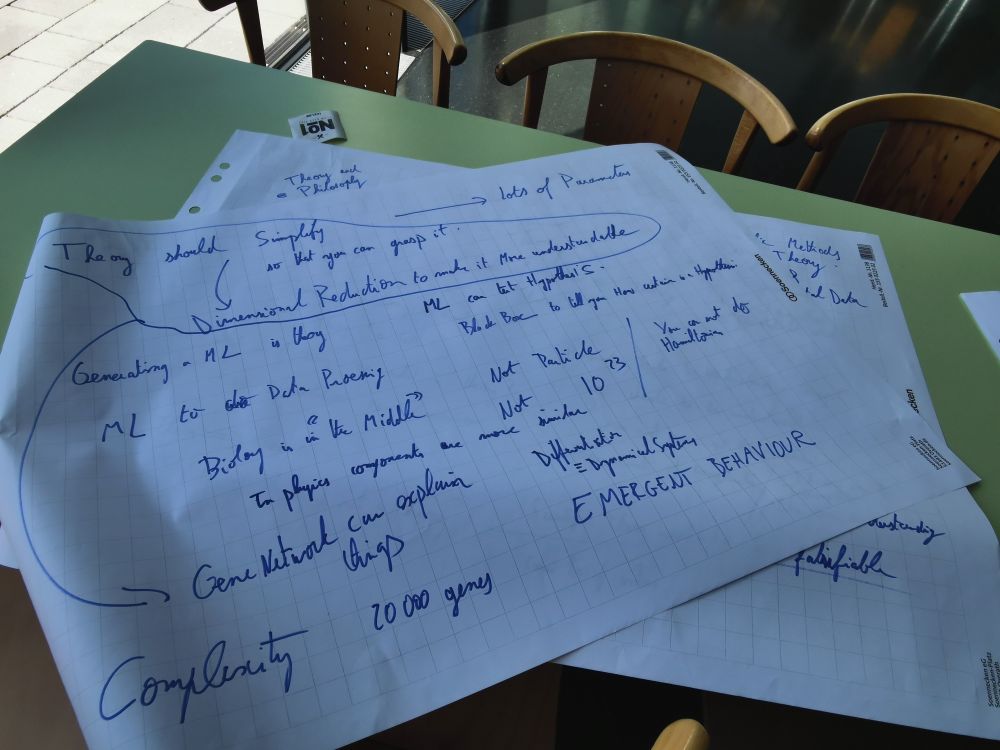 No1
Theory and
Philosophy
→ Lots of Parameters
Theory should Simplify
so that you can grasp it.
Dimensional Reduction to make it More understandable
Generating a ML is theory
ML can test Hypothesis.
Black Box to tell you How certain is a Hypothesis
You can not do
Hamiltonian
ML to do Data Processing
Not Particle
Biology is "in the Middle"
Not 10^23
In physics components are more similar
Differentiation
≡ Dynamical Systems
Gene Network can explain
things
EMERGENT BEHAVIOUR
20 000 genes
Complexity
Methods
Theory
Data
Soennecken
falsifiable
Soennecken eG
Soennecken-Platz